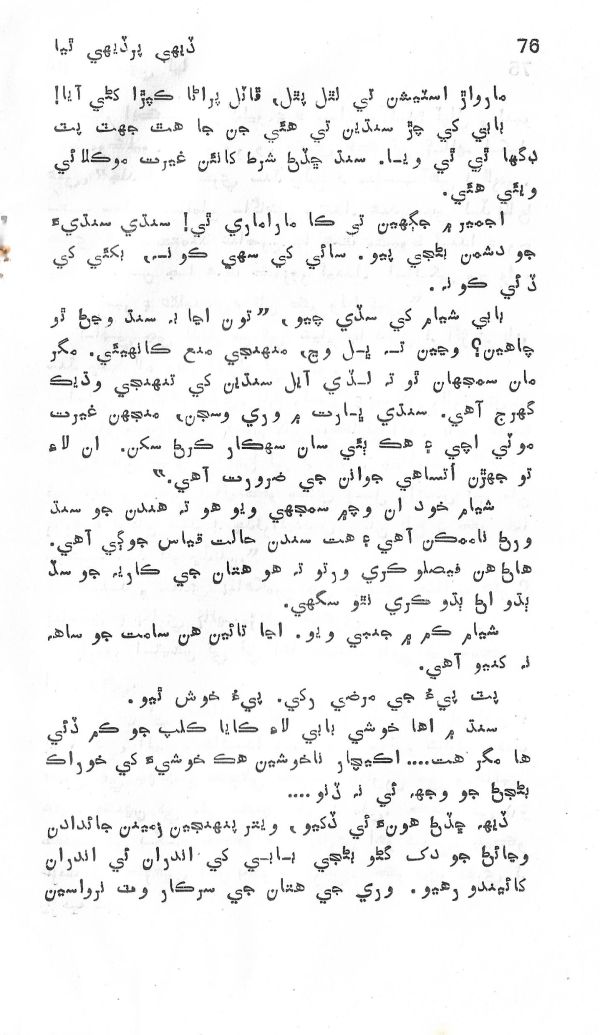 76
ڏيهي پرڏيهي ٿيا
مارواڙ اسٽيشن تي لٿل پٿل، ڦاٽل پراڻا ڪپڙا کڻي آيا!
بابي کي چڙ سنڌين تي هئي جن جا هٿ جهٽ پٽ
ڊگها ٿي ٿي ويا. سنڌ ڇڏڻ شرط کانئن غيرت موڪلائي
ويئي هئي.
اجمير ۾ جڳهين تي ڪا ماراماري ٿي! سنڌي سنڌيءَ
جو دشمن بڻجي پيو. سائي کي سهي ڪو نہ، بکئي کي
ڏئي ڪو نہ.
بابي شيام کي سڏي چيو، ”تون اڃا بہ سنڌ وڃڻ ٿو
چاهين؟ وڃين تہ ڀل وڃ، منهنجي منع ڪانهيئي. مگر
مان سمجهان ٿو تہ لڏي آيل سنڌين کي تنهنجي وڌيڪ
گهرج آهي. سنڌي ڀارت ۾ وري وسجن، منجهن غيرت
موٽي اچي ۽ هڪ ٻئي سان سهڪار ڪرڻ سکن. ان لاءِ
تو جهڙن اُتساهي جوانن جي ضرورت آهي.“
شيام خود ان وچ۾ سمجهي ويو هو تہ هندن جو سنڌ
ورڻ ناممڪن آهي ۽ هت سندن حالت قياس جوڳي آهي.
هاڻ هن فيصلو ڪري ورتو تہ هو هتان جي ڪاريہ جو سڏ
ٻڌو اڻ ٻڌو ڪري نٿو سگهي.
شيام ڪم ۾ جنبي ويو. اڃا تائين هن سامت جو ساهہ
نہ کنيو آهي.
پٽ پيءُ جي مرضي رکي. پيءُ خوش ٿيو.
سنڌ ۾ اها خوشي بابي لاءِ ڪايا ڪلپ جو ڪم ڏئي
ها مگر هت.... اڪيچار ناخوشين هڪ خوشيءَ کي خوراڪ
بڻجڻ جو وجهہ ئي نہ ڏنو....
ڏيهہ ڇڏڻ هونءَ ئي ڏکيو، ويتر پنهنجين زمينن جائدادن
وڃائڻ جو دک گڻو بڻجي بابي کي اندران ئي اندران
کائيندو رهيو. وري جي هتان جي سرڪار وٽ نرواسين